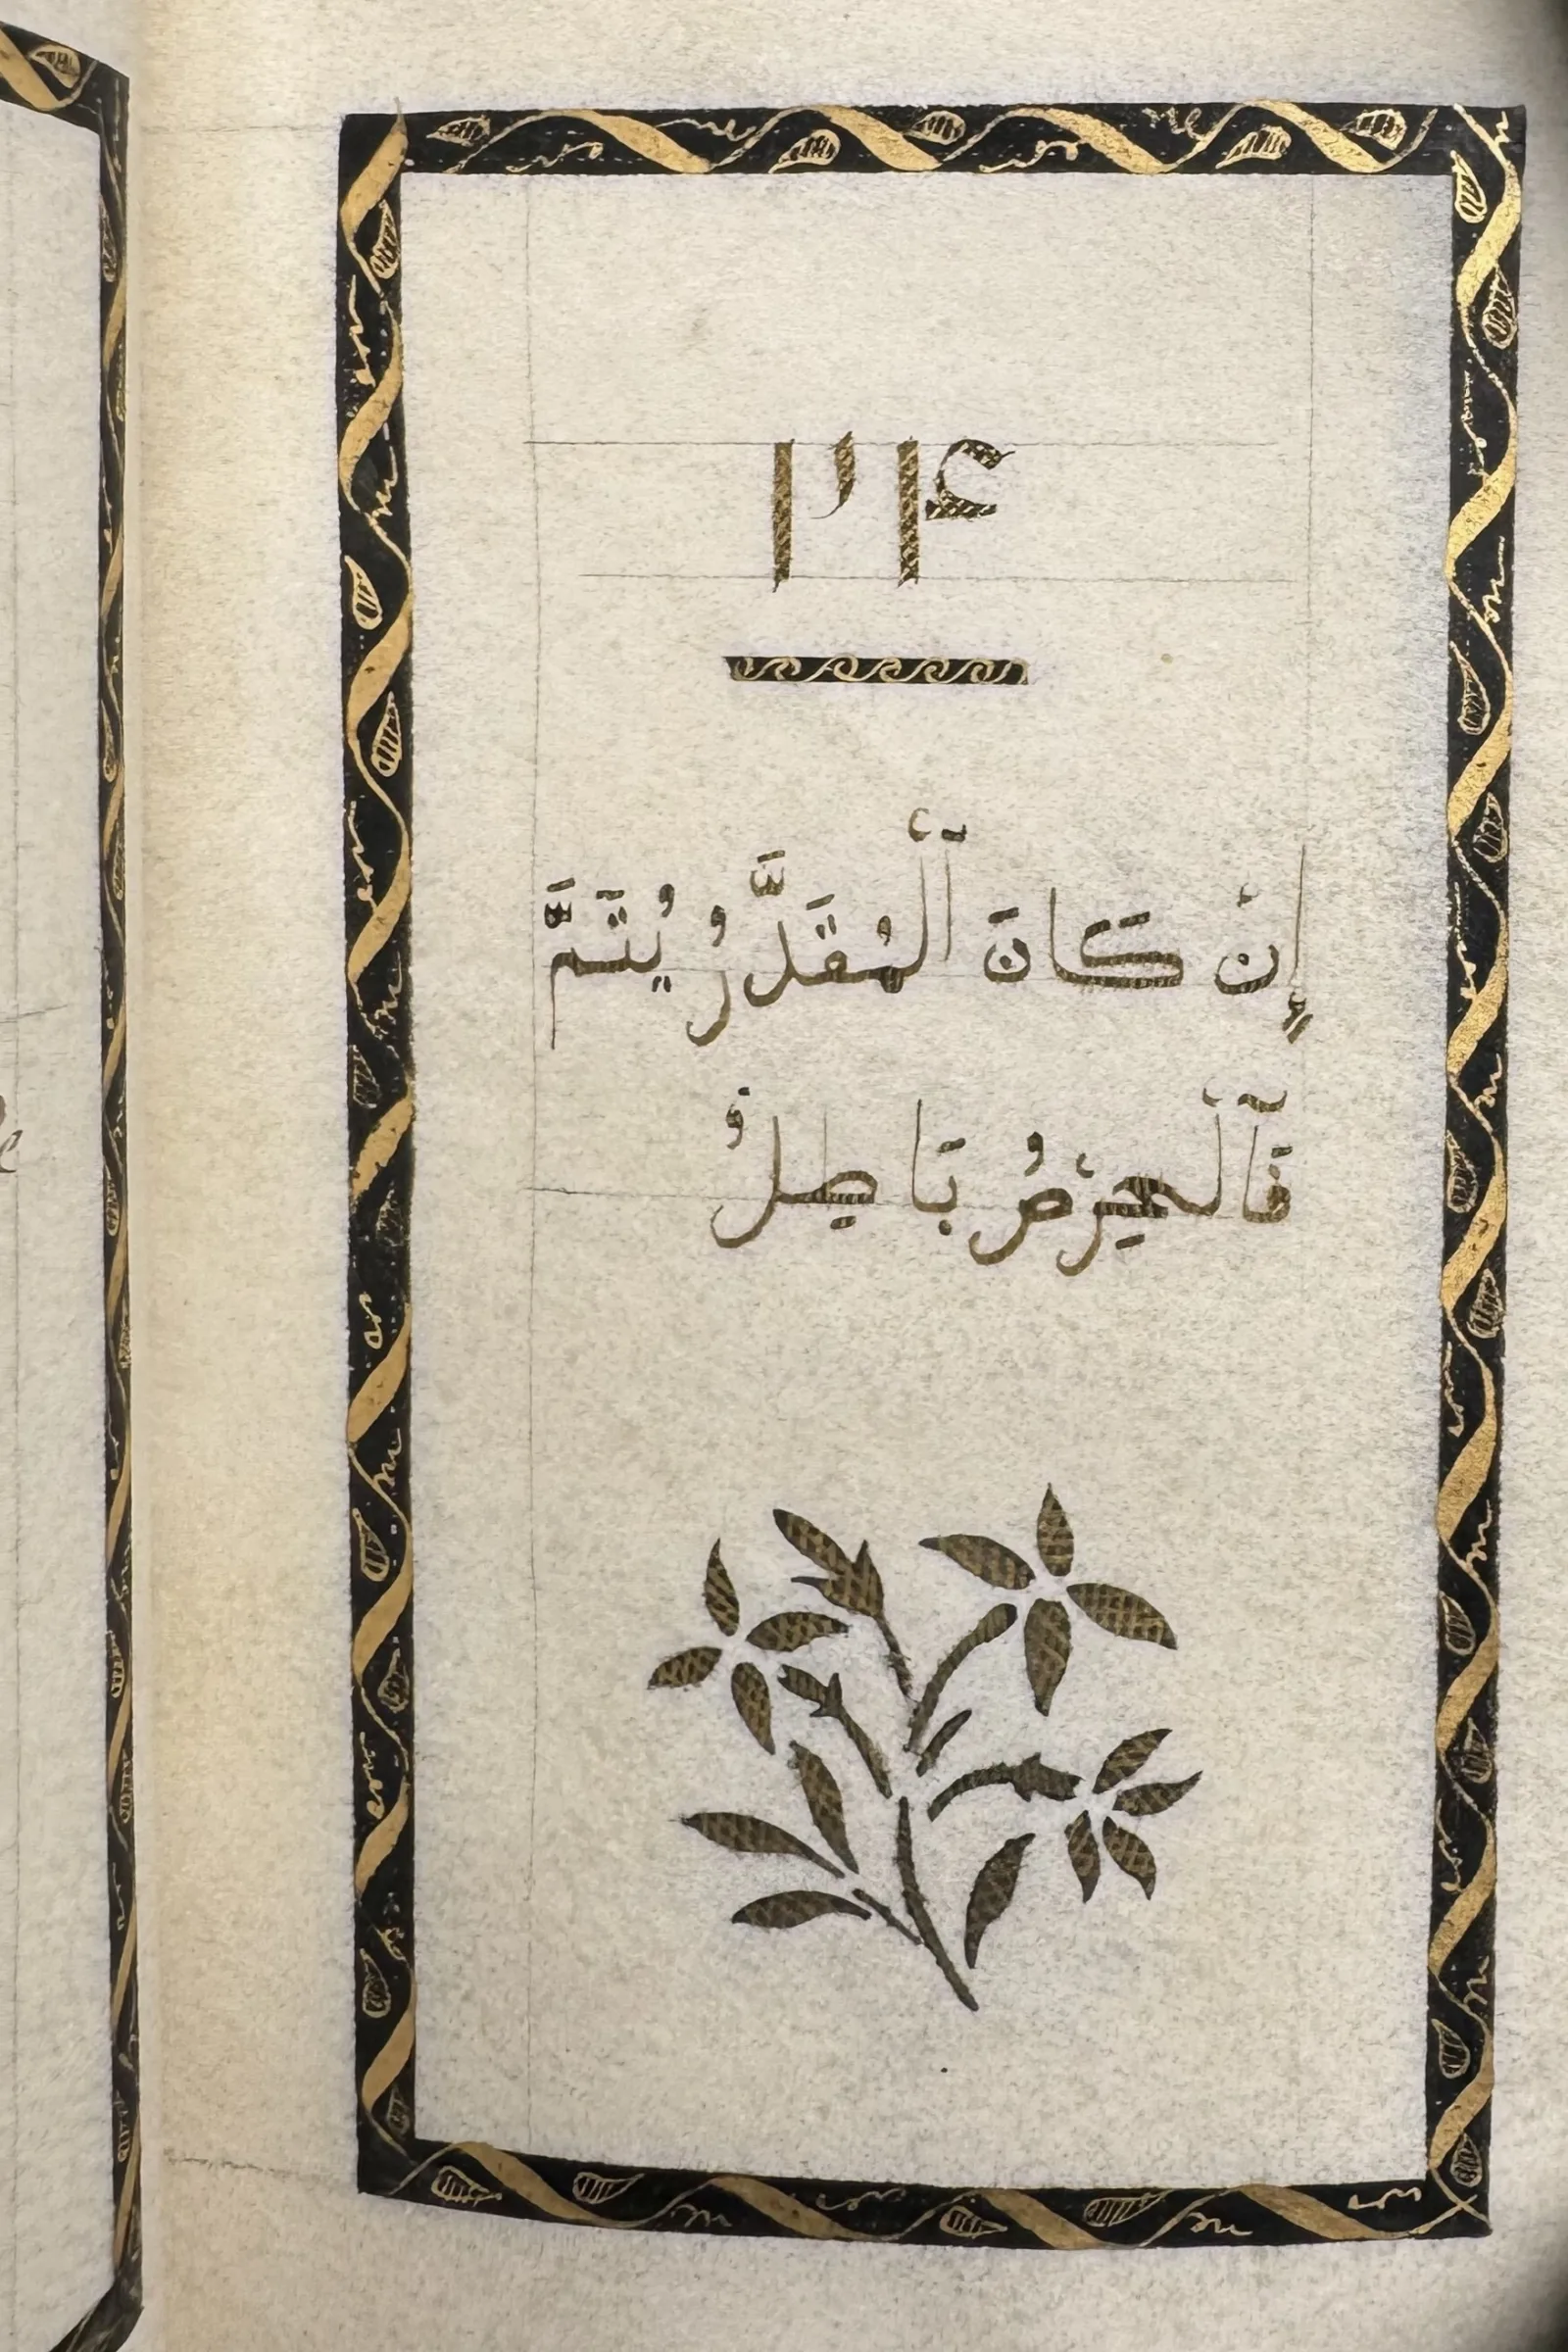 ۲۴
إِنْ كَانَ ٱلْمُقَدَّرُ يُتَمَّ
فَٱلْحِرْصُ بَاطِلُ